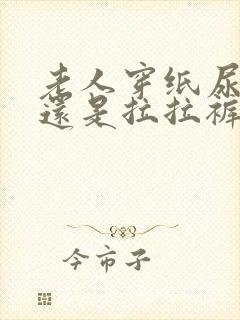 老人穿纸尿
还是拉拉裤
今市子